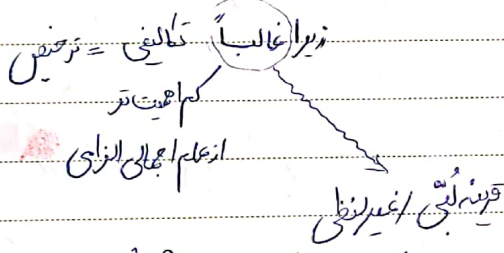 زیرا غالباً تکالیفی = ترخیص
کم اهمیت تر
از علم اجمالی الزامی
قرینه لُبّی / غیر لفظی